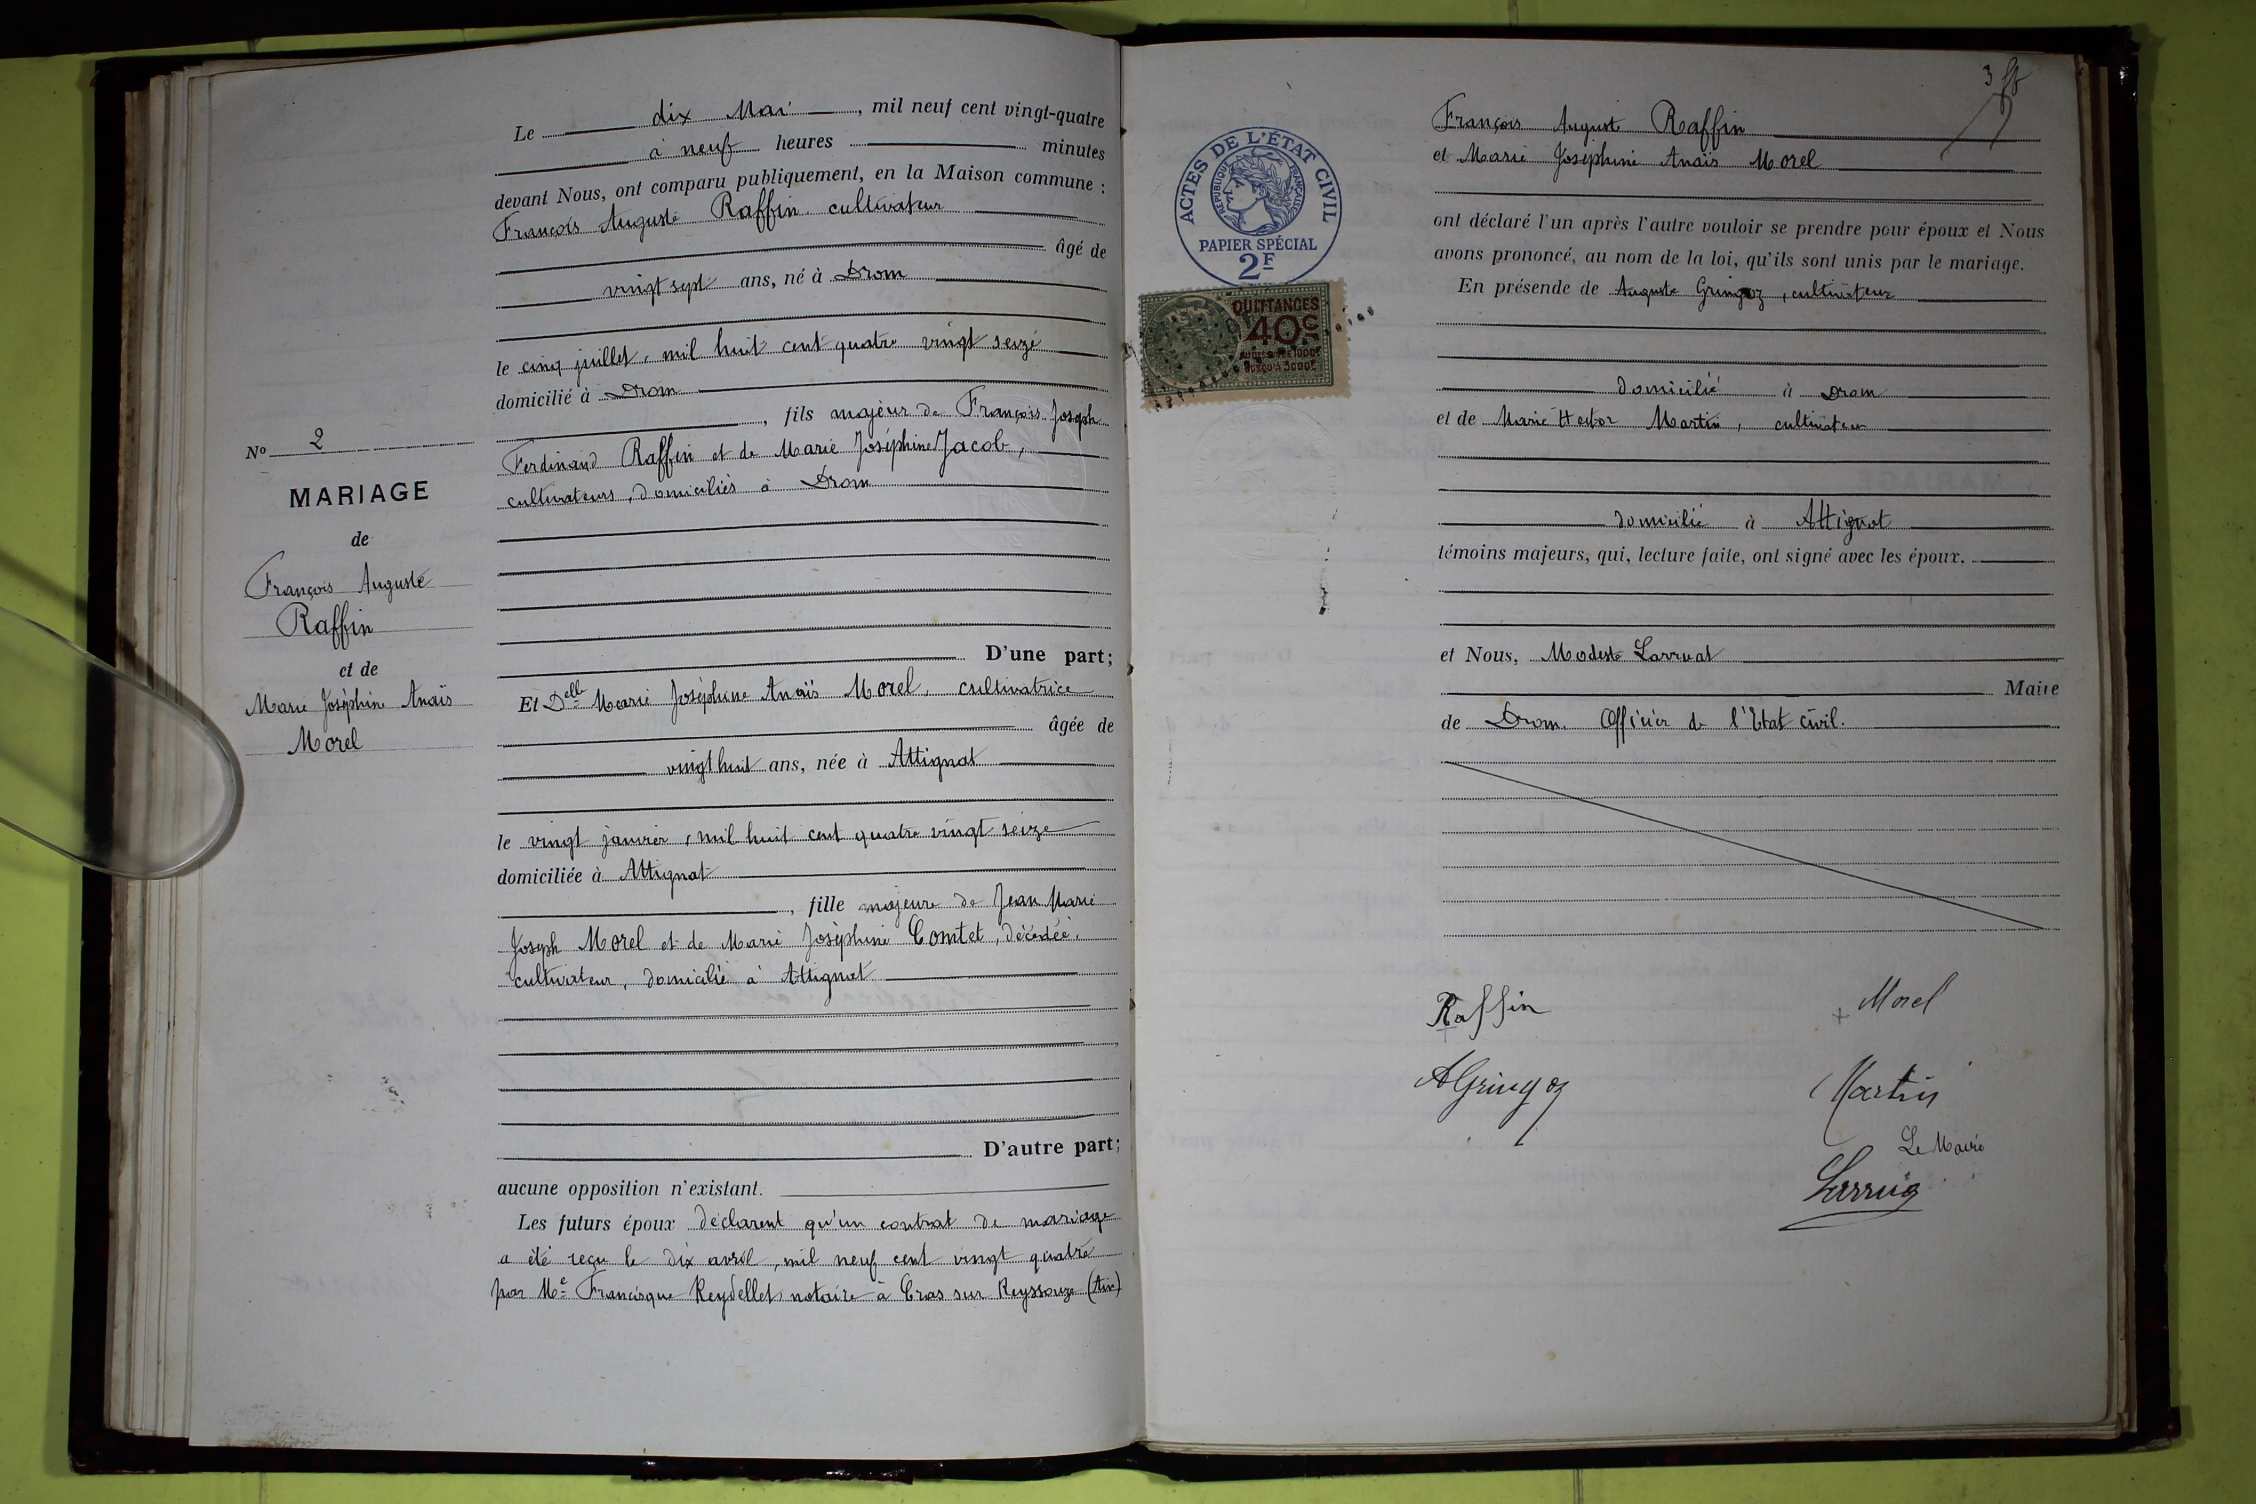 Le dix Mai, mil neuf cent vingt-quatre
à neuf heures minutes
devant Nous, ont comparu publiquement, en la Maison commune :
François Auguste Raffin cultivateur
âgé de
vingt sept ans, né à Drom
le cinq juillet, mil huit cent quatre vingt seize
domicilié à Drom
, fils majeur de François Joseph
Ferdinand Raffin et de Marie Joséphine Jacob,
cultivateurs, domiciliés à Drom
D'une part;
Et Delle Marie Joséphine Anaïs Morel, cultivatrice
âgée de
vingt huit ans, née à Attignat
le vingt janvier, mil huit cent quatre vingt seize
domiciliée à Attignat
, fille majeure de Jean Marie
Joseph Morel et de Marie Joséphine Comtet, décédée,
cultivateur, domicilié à Attignat
D'autre part;
aucune opposition n'existant.
Les futurs époux déclarent qu'un contrat de mariage
a été reçu le dix avril, mil neuf cent vingt quatre
par Me Francisque Reydellet notaire à Cras sur Reyssouze (Ain)
No 2
MARIAGE
de
François Auguste
Raffin
et de
Marie Joséphine Anaïs
Morel
3
ACTES DE L'ÉTAT CIVIL
RÉPUBLIQUE FRANÇAISE
PAPIER SPÉCIAL
2F
QUITTANCES
40c
François Auguste Raffin
et Marie Joséphine Anaïs Morel
ont déclaré l'un après l'autre vouloir se prendre pour époux et Nous
avons prononcé, au nom de la loi, qu'ils sont unis par le mariage.
En présende de Auguste Gringoz, cultivateur
domicilié à Drom
et de Marie Hector Martin, cultivateur
domicilié à Attignat
témoins majeurs, qui, lecture faite, ont signé avec les époux.
et Nous, Modeste
Maire
de Drom. Officier de l'Etat civil.
Raffin
Morel
AGringoz
Martin
Le Maire